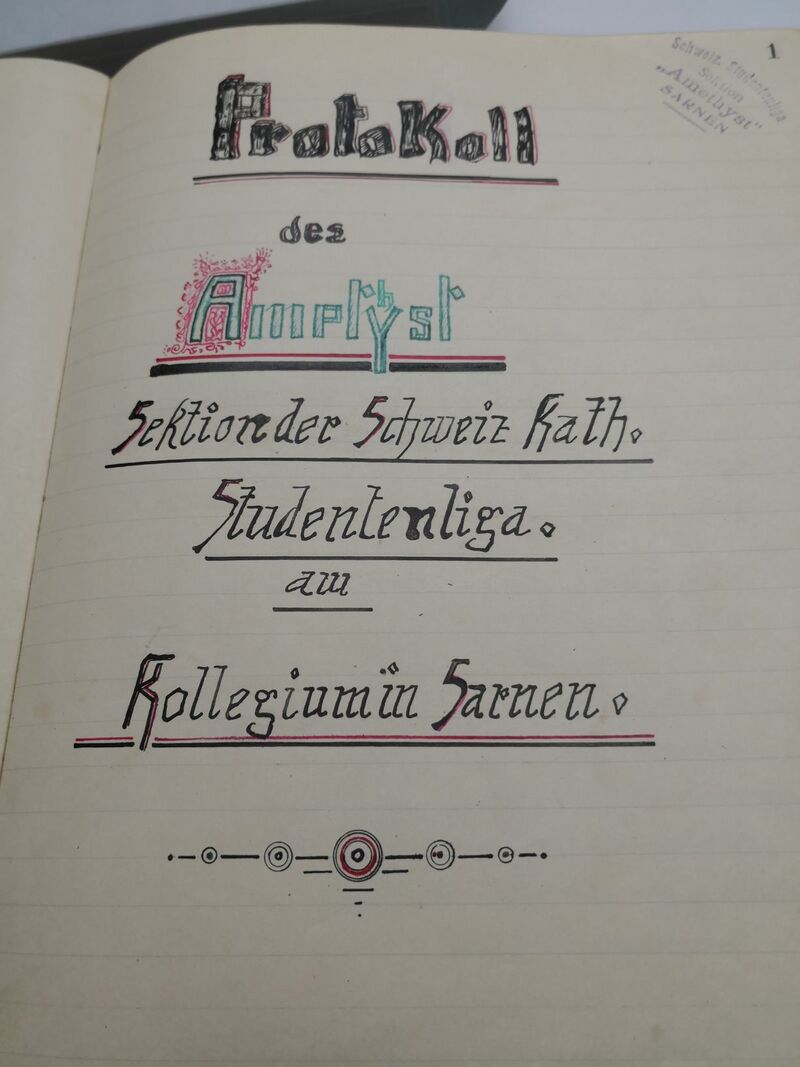 1
Schweiz. Studentenliga
Sektion
„Amethyst“
SARNEN
Protokoll
des
Amethyst
Sektion der Schweiz Kath.
Studentenliga.
am
Kollegium in Sarnen.